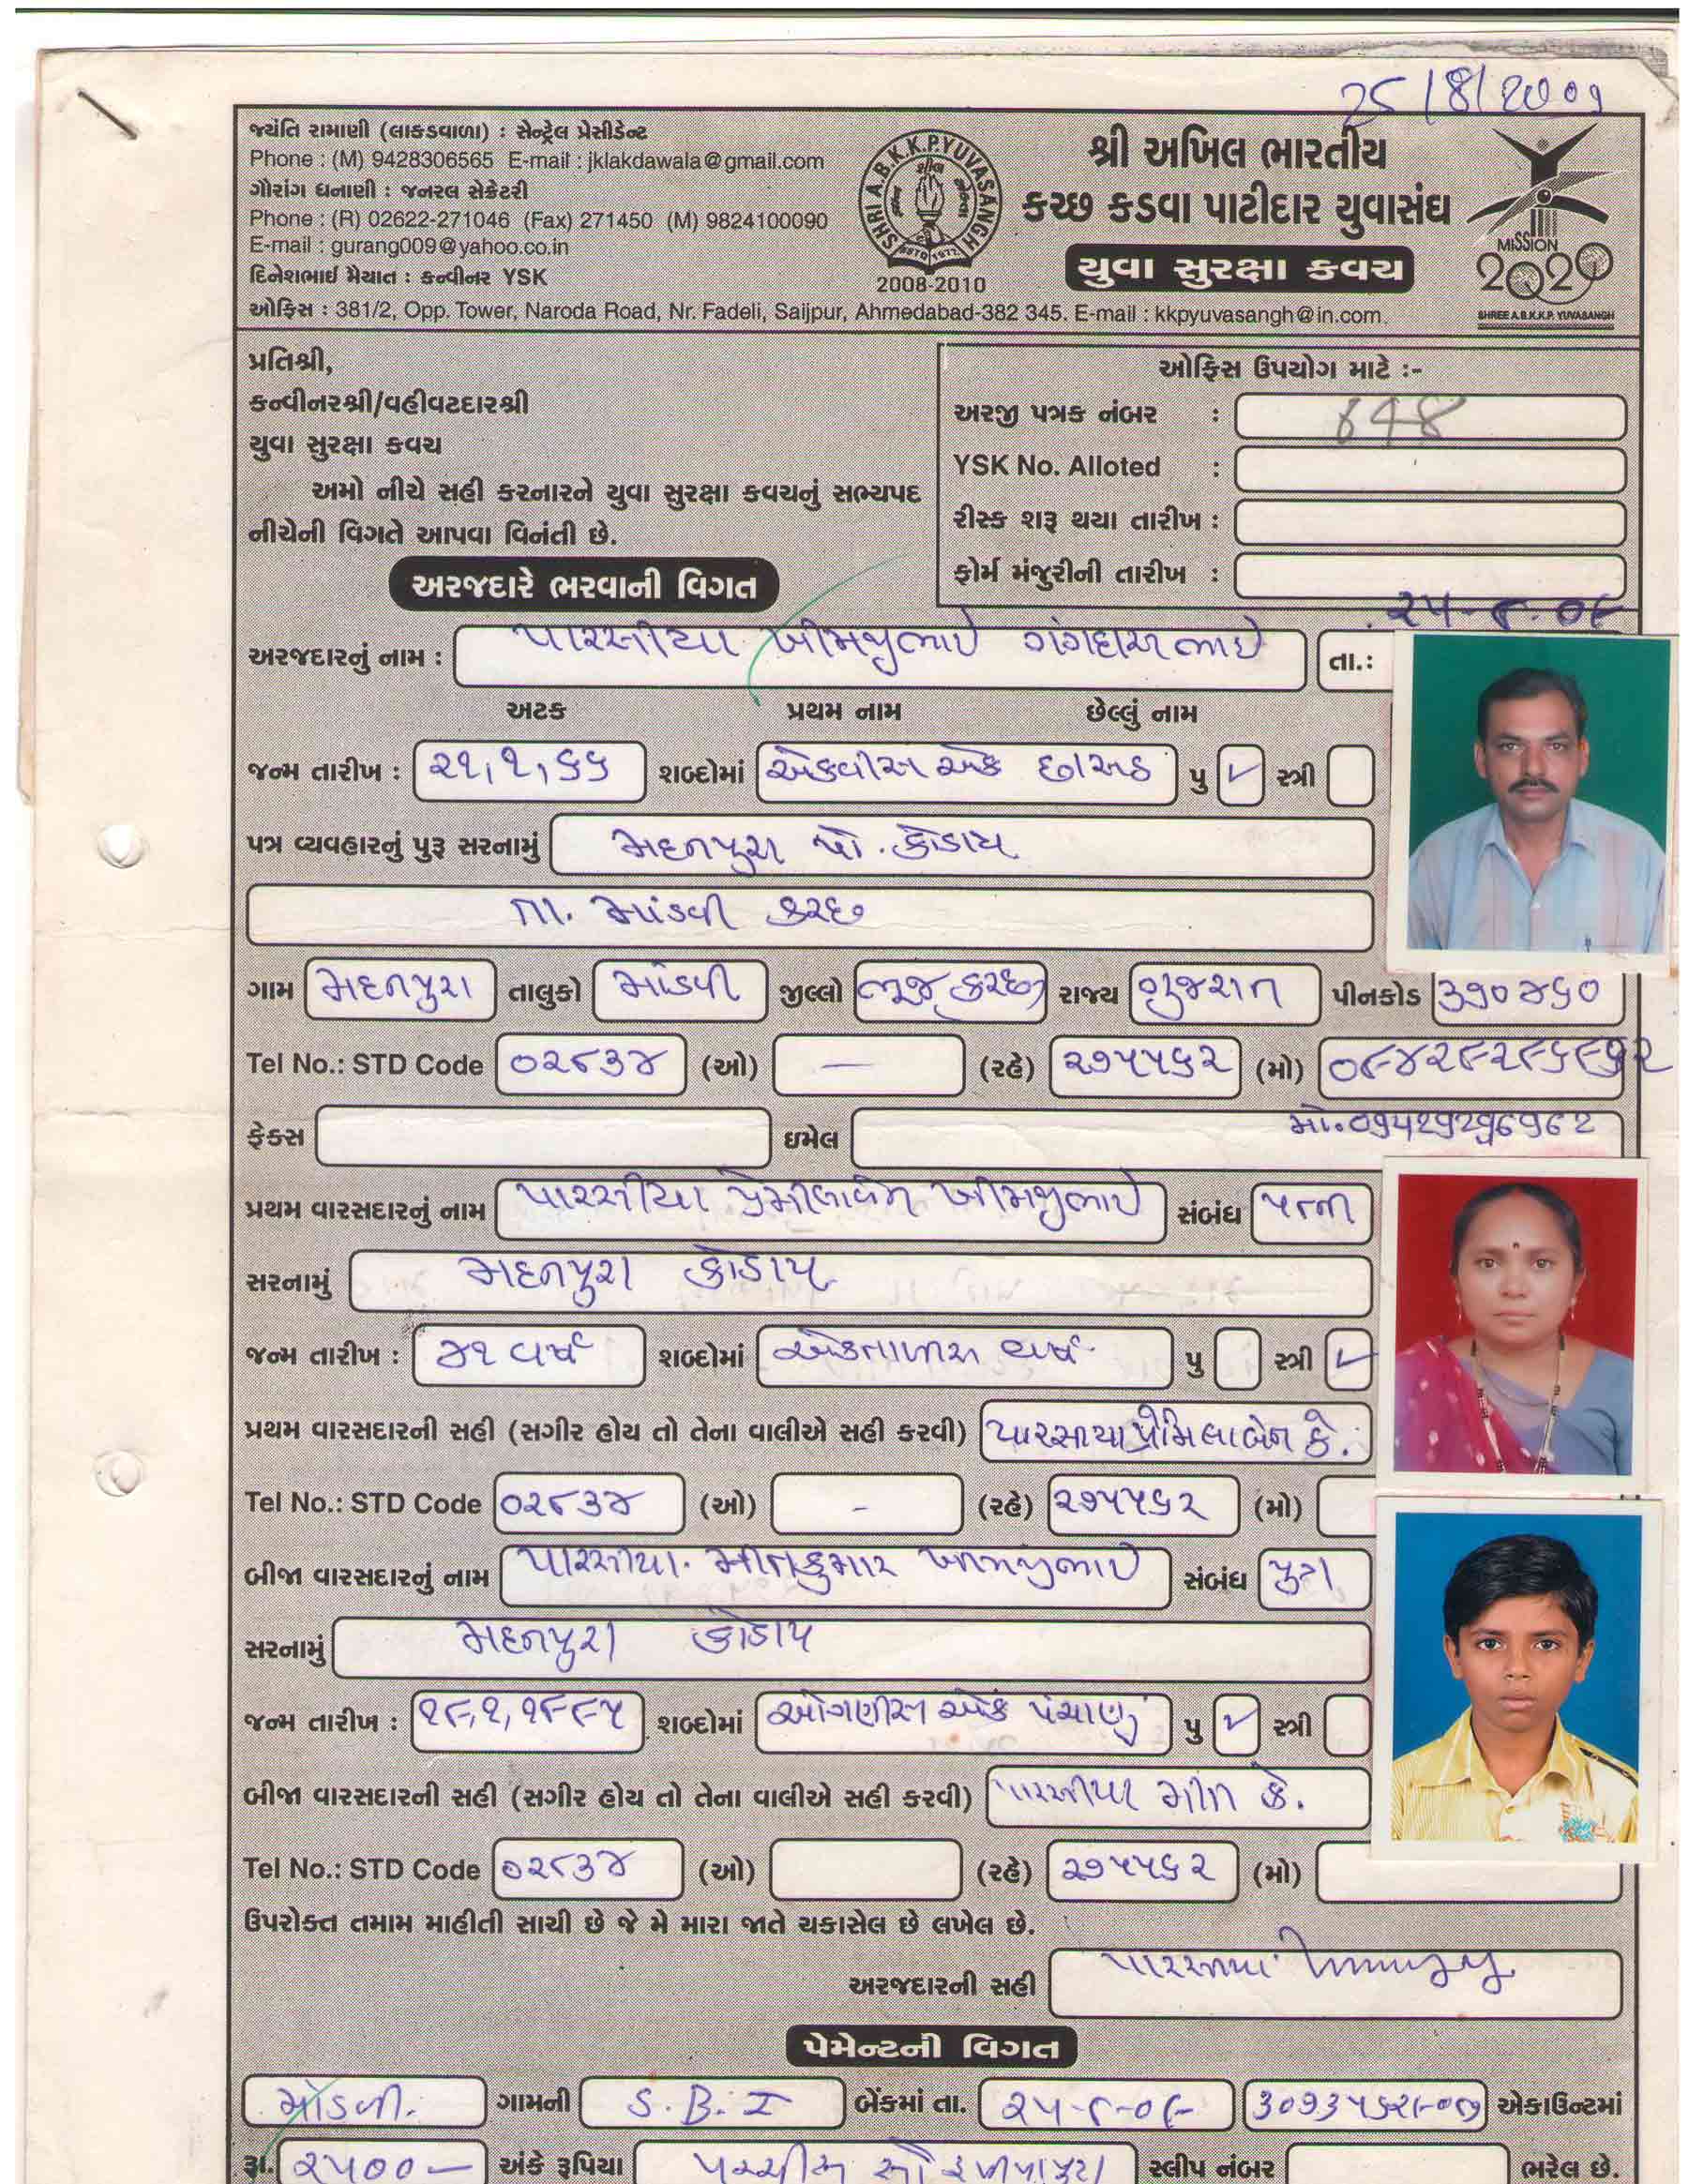 25/8/2009
જ્યંતિ રામાણી (લાકડવાળા) : સેન્ટ્રેલ પ્રેસીડેન્ટ
Phone : (M) 9428306565 E-mail : jklakdawala@gmail.com
ગૌરાંગ ધનાણી : જનરલ સેક્રેટરી
Phone : (R) 02622-271046 (Fax) 271450 (M) 9824100090
E-mail : gurang009@yahoo.co.in
દિનેશભાઈ મૈયાત : કન્વીનર YSK
SHRI A.B.K.K.P. YUVASANGH
2008-2010
શ્રી અખિલ ભારતીય
કચ્છ કડવા પાટીદાર યુવાસંઘ
યુવા સુરક્ષા કવચ
MISSION
2020
SHREE A.B.K.K.P. YUVASANGH
ઓફિસ : 381/2, Opp. Tower, Naroda Road, Nr. Fadeli, Saijpur, Ahmedabad-382 345. E-mail : kkpyuvasangh@in.com.
પ્રતિશ્રી,
કન્વીનરશ્રી/વહીવટદારશ્રી
યુવા સુરક્ષા કવચ
અમો નીચે સહી કરનારને યુવા સુરક્ષા કવચનું સભ્યપદ
નીચેની વિગતે આપવા વિનંતી છે.
ઓફિસ ઉપયોગ માટે :-
અરજી પત્રક નંબર : 648
YSK No. Alloted :
રીસ્ક શરૂ થયા તારીખ :
ફોર્મ મંજુરીની તારીખ :
અરજદારે ભરવાની વિગત
૨૫-૮-૦૯
અરજદારનું નામ : પારસીયા ખીમજીભાઈ ગંગદાસભાઈ તા.:
અટક પ્રથમ નામ છેલ્લું નામ
જન્મ તારીખ : ૨૧,૧,૬૬ શબ્દોમાં એકવીસ એક છાસઠ પુ ✓ સ્ત્રી
પત્ર વ્યવહારનું પુરૂ સરનામું મદનપુરા પો. કોડાય
તા. માંડવી કચ્છ
ગામ મદનપુરા તાલુકો માંડવી જીલ્લો ભૂજ કચ્છ રાજ્ય ગુજરાત પીનકોડ ૩૭૦૪૬૦
Tel No.: STD Code ૦૨૮૩૪ (ઓ) — (રહે) ૨૭૫૫૬૨ (મો) ૦૯૪૨૯૨૯૬૯૬૨
ફેક્સ ઇમેલ મો.
પ્રથમ વારસદારનું નામ પારસીયા પ્રેમીલાબેન ખીમજીભાઈ સંબંધ પત્ની
સરનામું મદનપુરા કોડાય
જન્મ તારીખ : ૪૧ વર્ષ શબ્દોમાં એકતાળીસ વર્ષ પુ સ્ત્રી ✓
પ્રથમ વારસદારની સહી (સગીર હોય તો તેના વાલીએ સહી કરવી) પારસીયા પ્રેમિલાબેન કે.
Tel No.: STD Code ૦૨૮૩૪ (ઓ) - (રહે) ૨૭૫૫૬૨ (મો)
બીજા વારસદારનું નામ પારસીયા મીતકુમાર ખીમજીભાઈ સંબંધ પુત્ર
સરનામું મદનપુરા કોડાય
જન્મ તારીખ : ૧૯,૧,૧૯૯૫ શબ્દોમાં ઓગણીસ એક પંચાણું પુ ✓ સ્ત્રી
બીજા વારસદારની સહી (સગીર હોય તો તેના વાલીએ સહી કરવી) પારસીયા મીત કે.
Tel No.: STD Code ૦૨૮૩૪ (ઓ) (રહે) ૨૭૫૫૬૨ (મો)
ઉપરોક્ત તમામ માહીતી સાચી છે જે મે મારા જાતે ચકાસેલ છે લખેલ છે.
અરજદારની સહી પારસીયા
પેમેન્ટની વિગત
માંડવી. ગામની S.B.I બેંકમાં તા. ૨૫-૮-૦૯ એકાઉન્ટમાં
રૂા. ૨૫૦૦ — અંકે રૂપિયા પચ્ચીસ સો રૂપીયા પુરા સ્લીપ નંબર ભરેલ છે.